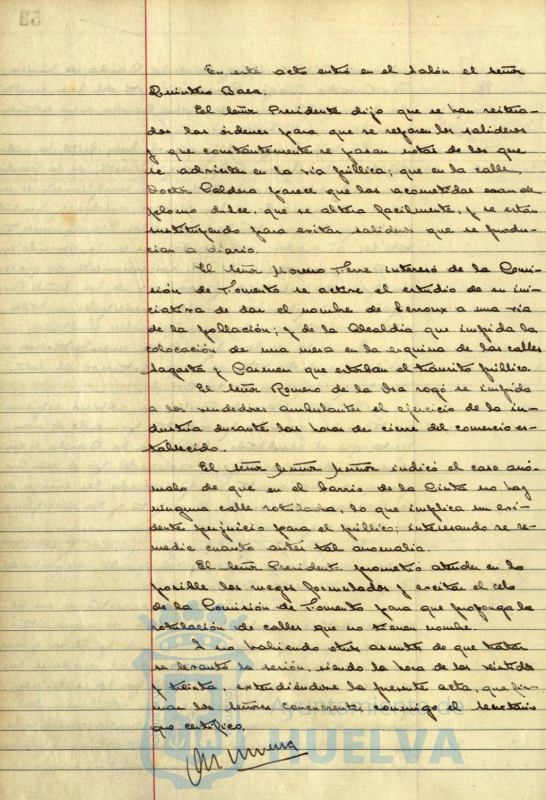 53
En este acto entró en el salón el señor
Quintero Baez.
El señor Presidente dijo que se han reitera-
dos las órdenes para que se reparen los salideros
y que constantemente se pasan notas de los que
se advierten en la vía pública; que en la calle,
Doctor Caldera parece que las acometidas eran de
plomo dulce, que se altera facilmente, y se están
sustituyendo para evitar salideros que se produ-
cian a diario.
El señor Moreno Ferre interesó de la Comi-
sión de Fomento se active el estudio de su ini-
ciativa de dar el nombre de Lerroux a una vía
de la población; y de la Alcaldía que impida la
colocación de una mesa en la esquina de las calles
Sagasta y Carmen que estorban el tránsito público.
El señor Romero de la Osa rogó se impida
a los vendedores ambulantes el ejercicio de la in-
dustria durante las horas de cierre del comercio es-
tablecido.
El señor Muñoz Muñoz indicó el caso anó-
malo de que en el barrio de la Cinta no hay
ninguna calle rotulada, lo que implica un evi-
dente perjuicio para el público; interesando se re-
medie cuanto antes tal anomalia.
El señor Presidente prometió atender en lo
posible los ruegos formulados y excitar el celo
de la Comisión de Fomento para que proponga la
rotulación de calles que no tienen nombre.
Y no habiendo otros asuntos de que tratar
se levantó la sesión, siendo la hora de las veintidos
y treinta, extendiéndose la presente acta, que fir-
man los señores concurrentes conmigo el secretario
que certifico.
Ayuntamiento de
HUELVA